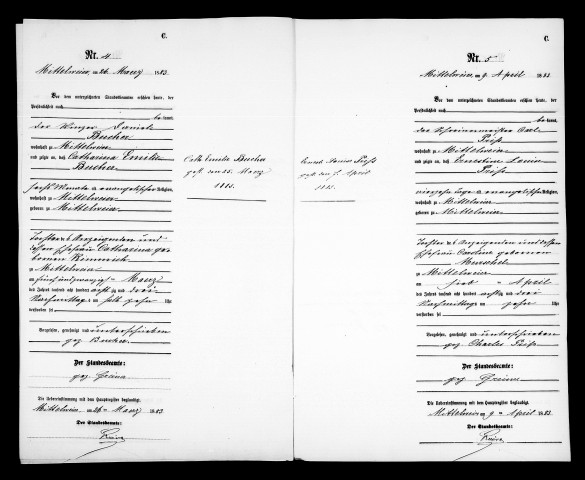 C.
Nr. 4
Mittelweier, am 26. Maerz 1883
Vor dem unterzeichneten Standesbeamten erschien heute, der
Persönlichkeit nach
bekannt,
der Winzer Daniel
Bucher
wohnhaft zu Mittelweier
und zeigte an, daß Catharina Emilie
Bucher
sechs Monate alt evangelischer Religion,
wohnhaft zu Mittelweier
geboren zu Mittelweier
Tochter des Anzeigenden und
dessen Ehefrau Catharina ge-
bornen
zu Mittelweier
am fünfundzwanzigsten Maerz
des Jahres tausend acht hundert achtzig und drei
Nachmittags um halb zehn Uhr
verstorben sei
Vorgelesen, genehmigt und unterschrieben
gez. Bucher
Der Standesbeamte:
gez. Greiner
Die Uebereinstimmung mit dem Hauptregister beglaubigt.
Mittelweier am 26ten Maerz 1883
Der Standesbeamte:
Cath. Emilie Bucher
gest. am 25. Maerz
1883.
Louise Preiss
gest. am 7. April
1883.
C.
Nr. 5
Mittelweier, am 9. April 1883
Vor dem unterzeichneten Standesbeamten erschien heute, der
Persönlichkeit nach
bekannt,
der Schreinermeister Carl
Preiss
wohnhaft zu Mittelweier
und zeigte an, daß Ernestine Louise
Preiss
Tage alt evangelischer Religion,
wohnhaft zu Mittelweier
geboren zu Mittelweier
Tochter des Anzeigenden und dessen
Ehefrau Caroline gebornen
zu Mittelweier
am sieben April
des Jahres tausend acht hundert achtzig und drei
Nachmittags um zehn Uhr
verstorben sei
Vorgelesen, genehmigt und unterschrieben
gez. Charles Preiss
Der Standesbeamte:
gez. Greiner
Die Uebereinstimmung mit dem Hauptregister beglaubigt.
Mittelweier am 9ten April 1883
Der Standesbeamte: